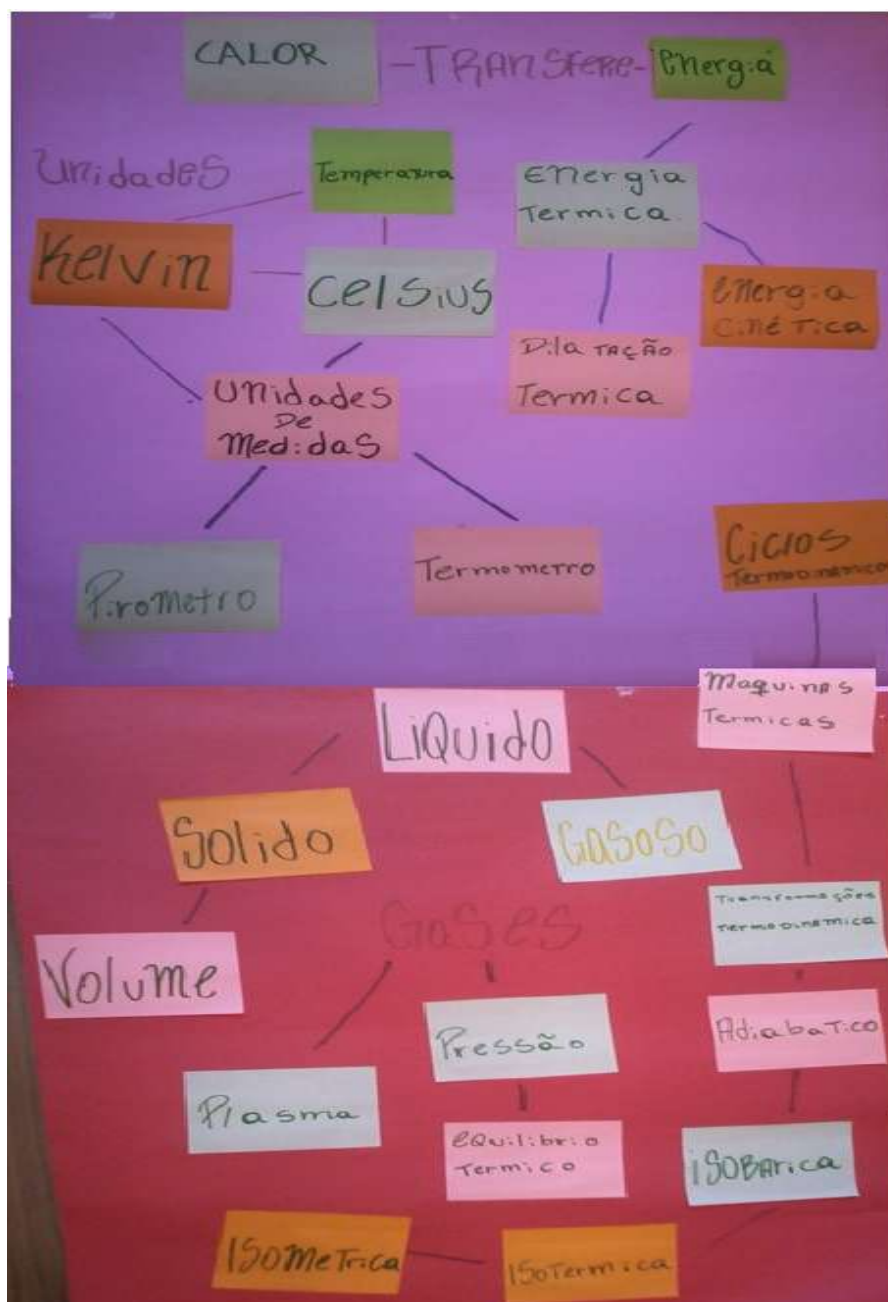 CALOR -TRANSFERE- Energiá
Unidades
Temperatura
Energia
Termica
Kelvin
Celsius
Energia
cinéTica
DilaTAÇÃO
Termica
Unidades
De
Medidas
Pirometro
Termometro
Ciclos
Termodinâmico
Maquinas
Termicas
LiQuido
Solido
GaSoSo
Transformações
Termodinâmica
GaSes
Volume
Pressão
AdiabaTico
Plasma
eQuilibrio
Termico
iSOBArica
ISOMeTrica
ISoTermica